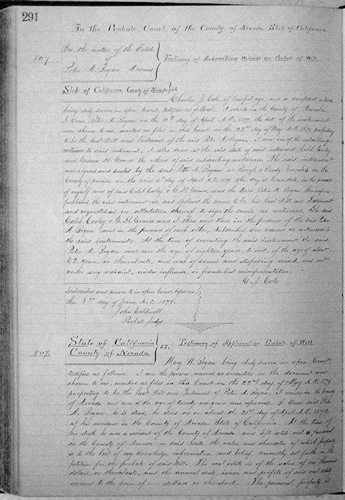 291
In the Probate Court of the County of Nevada State of California
In the matter of the Estate
No 7.
of
Peter A. Bryan, deceased
Testimony of Subscribing Witness on Probate of Will
State of California, County of Nevada ss
Charles J. Cole, of lawful age, and a competent witness
being duly sworn in open Court, testifies as follows: I reside in the County of Nevada
I knew Peter A. Bryan on the day of April A.D. 1879, the date of the instrument
now shown to me, marked as filed in this Court on the 22nd day of May A.D. 1879, purporting
to be the last Will and Testament of the said Peter A. Bryan, I am one of the subscribing
witnesses to said instrument. I also knew at the said date of said instrument Caleb Cooley
and the other of said subscribing witnesses. The said instrument
was signed and sealed by the said Peter A. Bryan, at Rough & Ready Township in the
County of Nevada, on the day of April A.D. 1879, the day it bears date, in the presence
of myself and of said Caleb Cooley and the said Peter A. Bryan, thereupon
published the said instrument as, and declared the same to be, his last Will and Testament
and requested us in attestation thereof to sign the same as witnesses. The said
Caleb Cooley and I then and there in the presence of the said Peter
A. Bryan, and in the presence of each other, subscribed our names as witnesses to
the said instrument. At the time of executing the said instrument the said
Peter A. Bryan was over the age of eighteen years, to wit, of the age of about
62 years, or thereabouts, and was of sound and disposing mind, and not
under any restraint, undue influence, or fraudulent misrepresentation.
C. J. Cole
Subscribed and sworn to in open Court, before me
this 3rd day of June A.D. 1879.
John Caldwell
Probate Judge.
No 7.
State of California
County of Nevada
ss.
Testimony of Applicant on Probate of Will
Mary W. Bryan being duly sworn in open Court
testifies as follows: I am the person named as executrix in the document now
shown to me, marked as filed in this Court on the 22nd day of May A.D. 1879
purporting to be the last Will and Testament of Peter A. Bryan. I reside in the County
of Nevada, and am over the age of twenty one years and upwards. I knew said Peter
A. Bryan, he is dead, he died on or about the day of April A.D. 1879,
at his residence in the County of Nevada State of California. At the time of
his death he was a resident of the County of Nevada and left estate
in the County of Nevada in said State, the value and character of which property
is to the best of my knowledge, information, and belief, correctly set forth in the
petition for the probate of said Will. The real estate is of the value of
dollars or thereabouts, and the annual rents, issues and profits of said real estate
amount to the sum of dollars or thereabouts. The personal property is